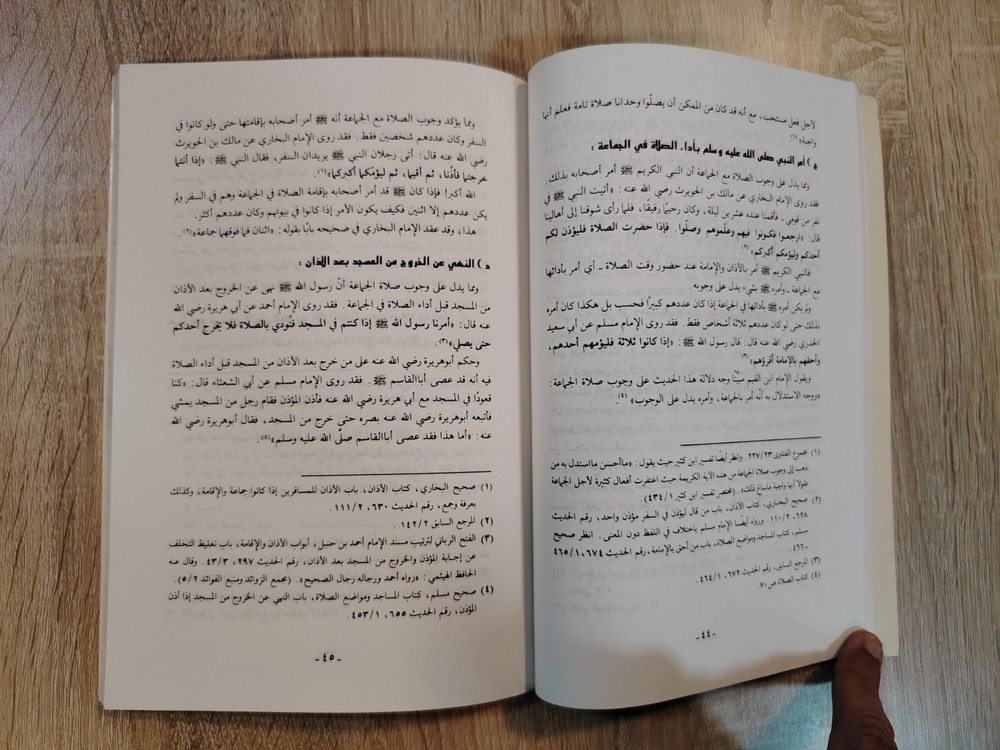 لأجل فعل مستحب، مع أنه قد كان من الممكن أن يصلّوا وحدانا صلاة تامة فعلم أنها
واجبة»(١).
ج) أمر النبي صلى الله عليه وسلم بأداء الصلاة في الجماعة :
ومما يدل على وجوب الصلاة مع الجماعة أن النبي الكريم ﷺ أمر أصحابه بذلك.
فقد روى الإمام البخاري عن مالك بن الحويرث رضي الله عنه: «أتيت النبي ﷺ في
نفر من قومي، فأقمنا عنده عشرين ليلة، وكان رحيمًا رفيقًا، فلما رأى شوقنا إلى أهالينا
قال: «ارجعوا فكونوا فيهم وعلّموهم وصلّوا. فإذا حضرت الصلاة فليؤذن لكم
أحدكم وليؤمكم أكبركم»(٢)
فالنبي الكريم ﷺ أمر بالأذان والإمامة عند حضور وقت الصلاة ـ أي أمر بأدائها
مع الجماعة ـ وأمره ﷺ بشيء يدل على وجوبه.
ولم يكن أمره ﷺ بأدائها في الجماعة إذا كان عددهم كبيرًا فحسب بل هكذا كان أمره
بذلك حتى لو كان عددهم ثلاثة أشخاص فقط. فقد روى الإمام مسلم عن أبي سعيد
الخدري رضي الله عنه قال: قال رسول الله ﷺ: «إذا كانوا ثلاثة فليؤمهم أحدهم،
وأحقهم بالإمامة أقرؤهم»(٣)
ويقول الإمام ابن القيم مبيّنًا وجه دلالة هذا الحديث على وجوب صلاة الجماعة:
«ووجه الاستدلال به أنه أمر بالجماعة، وأمره يدل على الوجوب»(٤).
(١) مجموع الفتاوى ٢٢٧/٢٣. وانظر أيضًا تفسير ابن كثير حيث يقول: «ماأحسن مااستدل به من
ذهب إلى وجوب صلاة الجماعة من هذه الآية الكريمة حيث اغتفرت أفعال كثيرة لأجل الجماعة
فلولا أنها واجبة ماساغ ذلك». (مختصر تفسير ابن كثير ٤٣٤/١)
(٢) صحيح البخاري، كتاب الأذان، باب من قال ليؤذن في السفر مؤذن واحد، رقم الحديث
٦٢٨، ١١٠/٢. ورواه أيضًا الإمام مسلم باختلاف في اللفظ دون المعنى. انظر صحيح
مسلم، كتاب المساجد ومواضع الصلاة، باب من أحق بالإمامة، رقم الحديث ٦٧٤، ٤٦٥/١
ـ ٤٦٦.
(٣) المرجع السابق، رقم الحديث ٦٧٢، ٤٦٤/١.
(٤) كتاب الصلاة ص٧٠.
ـ ٤٤ ـ
ومما يؤكد وجوب الصلاة مع الجماعة أنه ﷺ أمر أصحابه بإقامتها حتى ولو كانوا في
السفر وكان عددهم شخصين فقط. فقد روى الإمام البخاري عن مالك بن الحويرث
رضي الله عنه قال: أتى رجلان النبي ﷺ يريدان السفر، فقال النبي ﷺ: «إذا أنتما
خرجتما فأذّنا، ثم أقيما، ثم ليؤمّكما أكبركما»(١).
الله أكبر! فإذا كان ﷺ قد أمر أصحابه بإقامة الصلاة في الجماعة وهم في السفر ولم
يكن عددهم إلا اثنين فكيف يكون الأمر إذا كانوا في بيوتهم وكان عددهم أكثر.
هذا، وقد عقد الإمام البخاري في صحيحه بابًا بقوله: «اثنان فما فوقهما جماعة»(٢).
د) النهي عن الخروج من المسجد بعد الأذان :
ومما يدل على وجوب صلاة الجماعة أنّ رسول الله ﷺ نهى عن الخروج بعد الأذان
من المسجد قبل أداء الصلاة في الجماعة. فقد روى الإمام أحمد عن أبي هريرة رضي الله
عنه قال: «أمرنا رسول الله ﷺ إذا كنتم في المسجد فنُودي بالصلاة فلا يخرج أحدكم
حتى يصلي»(٣).
وحكم أبوهريرة رضي الله عنه على من خرج بعد الأذان من المسجد قبل أداء الصلاة
فيه أنه قد عصى أباالقاسم ﷺ. فقد روى الإمام مسلم عن أبي الشعثاء قال: «كنا
قعودًا في المسجد مع أبي هريرة رضي الله عنه فأذن المؤذن فقام رجل من المسجد يمشي
فأتبعه أبوهريرة رضي الله عنه بصره حتى خرج من المسجد، فقال أبوهريرة رضي الله
عنه: «أما هذا فقد عصى أباالقاسم صلّى الله عليه وسلم»(٤).
(١) صحيح البخاري، كتاب الأذان، باب الأذان للمسافرين إذا كانوا جماعة والإقامة، وكذلك
بعرفة وجمع، رقم الحديث ٦٣٠، ١١١/٢.
(٢) المرجع السابق ١٤٢/٢.
(٣) الفتح الرباني لترتيب مسند الإمام أحمد بن حنبل، أبواب الأذان والإقامة، باب تغليظ التخلف
عن إجابة المؤذن والخروج من المسجد بعد الأذان، رقم الحديث ٢٩٧، ٤٣/٣. وقال عنه
الحافظ الهيثمي: «رواه أحمد ورجاله رجال الصحيح». (مجمع الزوائد ومنبع الفوائد ٥/٢).
(٤) صحيح مسلم، كتاب المساجد ومواضع الصلاة، باب النهي عن الخروج من المسجد إذا أذن
المؤذن، رقم الحديث ٦٥٥، ٤٥٣/١.
ـ ٤٥ ـ